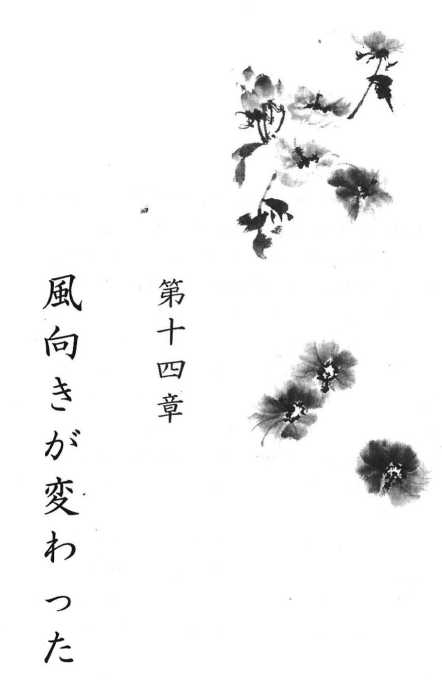 第十四章
風向きが変わった